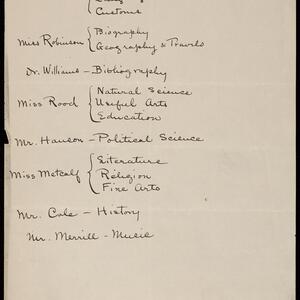 Customs
Miss Robinson { Biography
Geography & Travels
Dr. Williams – Bibliography
Miss Rood { Natural Science
Useful Arts
Education
Mr. Hanson – Political Science
Miss Metcalf { Literature
Religion
Fine Arts
Mr. Cole – History
Mr. Merrill – Music